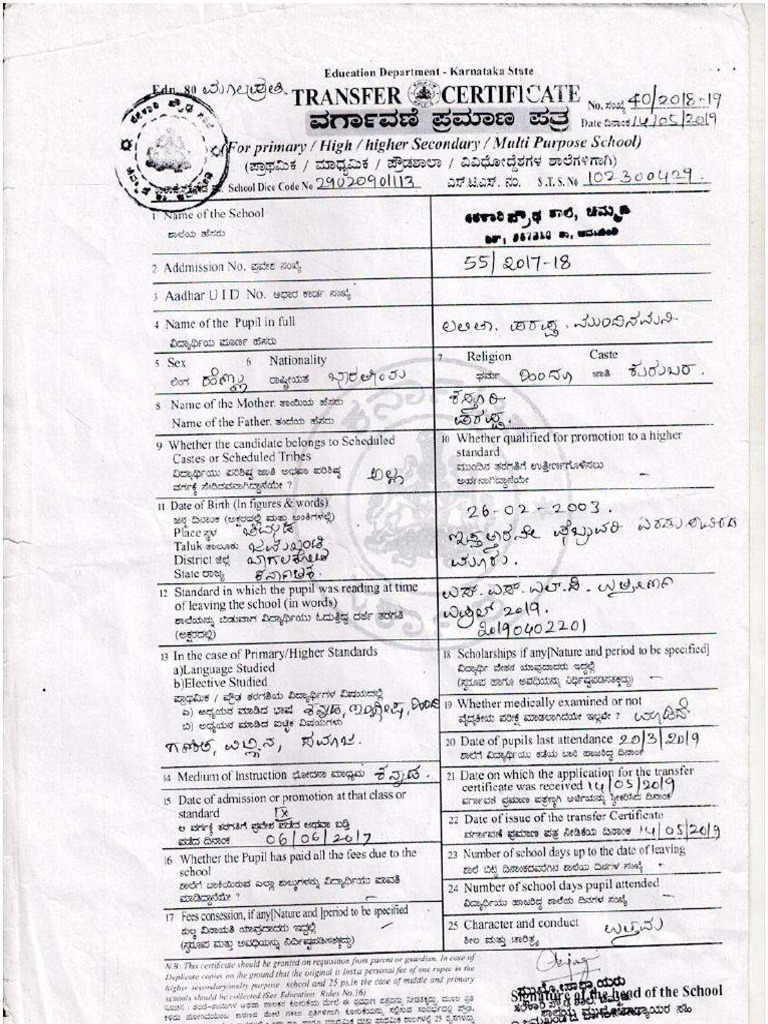 Education Department - Karnataka State
Edn. 80 ಮೂಲಪ್ರತಿ
TRANSFER CERTIFICATE
No. ಸಂಖ್ಯೆ 40/2018-19
ವರ್ಗಾವಣೆ ಪ್ರಮಾಣ ಪತ್ರ
Date ದಿನಾಂಕ 14/05/2019
(For primary / High / higher Secondary / Multi Purpose School)
(ಪ್ರಾಥಮಿಕ / ಮಾಧ್ಯಮಿಕ / ಪ್ರೌಢಶಾಲಾ / ವಿವಿಧೋದ್ದೇಶಗಳ ಶಾಲೆಗಳಿಗಾಗಿ)
School Dice Code No 29020901113 ಎಸ್.ಟಿ.ಎಸ್. ನಂ. S.T.S.No 102300429.
1 Name of the School ಸರಕಾರಿ ಪ್ರೌಢ ಶಾಲೆ, ಚಿಮ್ಮಡ
ಶಾಲೆಯ ಹೆಸರು
2 Admission No. ಪ್ರವೇಶ ಸಂಖ್ಯೆ 55/2017-18
3 Aadhar U I D No. ಆಧಾರ ಕಾರ್ಡ ಸಂಖ್ಯೆ
4 Name of the Pupil in full ಲಲಿತಾ. ಪರಪ್ಪ. ಮುಂದಿನಮನಿ
ವಿದ್ಯಾರ್ಥಿಯ ಪೂರ್ಣ ಹೆಸರು
5 Sex 6 Nationality 7 Religion Caste
ಲಿಂಗ ಹೆಣ್ಣು ರಾಷ್ಟ್ರೀಯತೆ ಭಾರತೀಯ ಧರ್ಮ ಹಿಂದೂ ಜಾತಿ ಕುರುಬರ.
8 Name of the Mother. ತಾಯಿಯ ಹೆಸರು ಕಸ್ತೂರಿ
Name of the Father. ತಂದೆಯ ಹೆಸರು ಪರಪ್ಪ.
9 Whether the candidate belongs to Scheduled
Castes or Scheduled Tribes
ವಿದ್ಯಾರ್ಥಿಯು ಪರಿಶಿಷ್ಟ ಜಾತಿ ಅಥವಾ ಪರಿಶಿಷ್ಟ ಅಲ್ಲ
ವರ್ಗಕ್ಕೆ ಸೇರಿದವನಾಗಿದ್ದಾನೆಯೇ ?
10 Whether qualified for promotion to a higher
standard
ಮುಂದಿನ ತರಗತಿಗೆ ಉತ್ತೀರ್ಣಗೊಳಿಸಲು
ಅರ್ಹನಾಗಿದ್ದಾನೆಯೇ -
11 Date of Birth (In figures & words) 26-02-2003.
ಜನ್ಮ ದಿನಾಂಕ (ಅಕ್ಷರದಲ್ಲಿ ಮತ್ತು ಅಂಕಿಗಳಲ್ಲಿ)
Place ಸ್ಥಳ ಚಿಮ್ಮಡ ಇಪ್ಪತ್ತಾರನೇ ಫೆಬ್ರುವರಿ ಎರಡು ಸಾವಿರದ
Taluk ತಾಲೂಕು ಜಮಖಂಡಿ ಮೂರು.
District ಜಿಲ್ಲೆ ಬಾಗಲಕೋಟ
State ರಾಜ್ಯ ಕರ್ನಾಟಕ.
12 Standard in which the pupil was reading at time
of leaving the school (in words)
ಶಾಲೆಯನ್ನು ಬಿಡುವಾಗ ವಿದ್ಯಾರ್ಥಿಯು ಓದುತ್ತಿದ್ದ ದರ್ಜೆ ತರಗತಿ
(ಅಕ್ಷರದಲ್ಲಿ)
ಎಸ್. ಎಸ್. ಎಲ್. ಸಿ. ಉತ್ತೀರ್ಣ
ಏಪ್ರಿಲ್ 2019.
20190402201
13 In the case of Primary/Higher Standards
a)Language Studied
b)Elective Studied
ಪ್ರಾಥಮಿಕ / ಪ್ರೌಢ ತರಗತಿಯ ವಿದ್ಯಾರ್ಥಿಗಳ ವಿಷಯದಲ್ಲಿ
ಎ) ಅಧ್ಯಯನ ಮಾಡಿದ ಭಾಷೆ ಕನ್ನಡ, ಇಂಗ್ಲೀಷ, ಹಿಂದಿ
ಬಿ) ಅಧ್ಯಯನ ಮಾಡಿದ ಐಚ್ಛಿಕ ವಿಷಯಗಳು
ಗಣಿತ, ವಿಜ್ಞಾನ, ಸಮಾಜ.
14 Medium of Instruction ಭೋದನಾ ಮಾಧ್ಯಮ ಕನ್ನಡ.
15 Date of admission or promotion at that class or
standard IX
ಆ ವರ್ಗಕ್ಕೆ ತರಗತಿಗೆ ಪ್ರವೇಶ ಪಡೆದ ಅಥವಾ ಬಡ್ತಿ
ಪಡೆದ ದಿನಾಂಕ 06/06/2017
16 Whether the Pupil has paid all the fees due to the
school
ಶಾಲೆಗೆ ಬಾಕಿಯಿರುವ ಎಲ್ಲಾ ಶುಲ್ಕಗಳನ್ನು ವಿದ್ಯಾರ್ಥಿಯು ಪಾವತಿ
ಮಾಡಿದ್ದಾನೆಯೇ ? -
17 Fees consession, if any[Nature and ]period to be specified
ಶುಲ್ಕ ವಿನಾಯತಿ ಯಾವುದಾದರು ಇದ್ದಲ್ಲಿ -
(ಸ್ವರೂಪ ಮತ್ತು ಅವಧಿಯನ್ನು ನಿರ್ದಿಷ್ಟಪಡಿಸತಕ್ಕದ್ದು)
18 Scholarships if any[Nature and period to be specified]
ವಿದ್ಯಾರ್ಥಿ ವೇತನ ಯಾವುದಾದರು ಇದ್ದಲ್ಲಿ -
(ಸ್ವರೂಪ ಹಾಗೂ ಅವಧಿಯನ್ನು ನಿರ್ಧಿಷ್ಟಪಡಿಸತಕ್ಕದ್ದು)
19 Whether medically examined or not
ವೈದ್ಯಕೀಯ ಪರೀಕ್ಷೆ ಮಾಡಲಾಗಿದೆಯೇ ಇಲ್ಲವೇ ? ಮಾಡಿದೆ
20 Date of pupils last attendance 20/3/2019
ಶಾಲೆಗೆ ವಿದ್ಯಾರ್ಥಿಯು ಕಡೆಯ ಬಾರಿ ಹಾಜರಿದ್ದ ದಿನಾಂಕ
21 Date on which the application for the transfer
certificate was received 14/05/2019
ವರ್ಗಾವಣೆ ಪ್ರಮಾಣ ಪತ್ರಕ್ಕಾಗಿ ಅರ್ಜಿಯನ್ನು ಸ್ವೀಕರಿಸಿದ ದಿನಾಂಕ
22 Date of issue of the transfer Certificate
ವರ್ಗಾವಣೆ ಪ್ರಮಾಣ ಪತ್ರ ನೀಡಿಕೆಯ ದಿನಾಂಕ 14/05/2019
23 Number of school days up to the date of leaving
ಶಾಲೆ ಬಿಟ್ಟ ದಿನಾಂಕದವರೆಗಿನ ಶಾಲೆಯ ದಿನಗಳ ಸಂಖ್ಯೆ -
24 Number of school days pupil attended
ವಿದ್ಯಾರ್ಥಿಯು ಹಾಜರಿದ್ದ ಶಾಲೆಯ ದಿನಗಳ ಸಂಖ್ಯೆ -
25 Character and conduct ಉತ್ತಮ
ಶೀಲ ಮತ್ತು ಚಾರಿತ್ರ್ಯ
N.B: This certificate should be granted on requisition from parent or guardian. In case of
Duplicate copies on the ground that the original is lost a personal fee of one rupee in the
higher secondary/multy purpose school and 25 ps.in the case of middle and primary
schools should be collected (See Education Rules No.36)
ಮುಖ್ಯೋಪಾಧ್ಯಾಯರು
Signature of the Head of the School